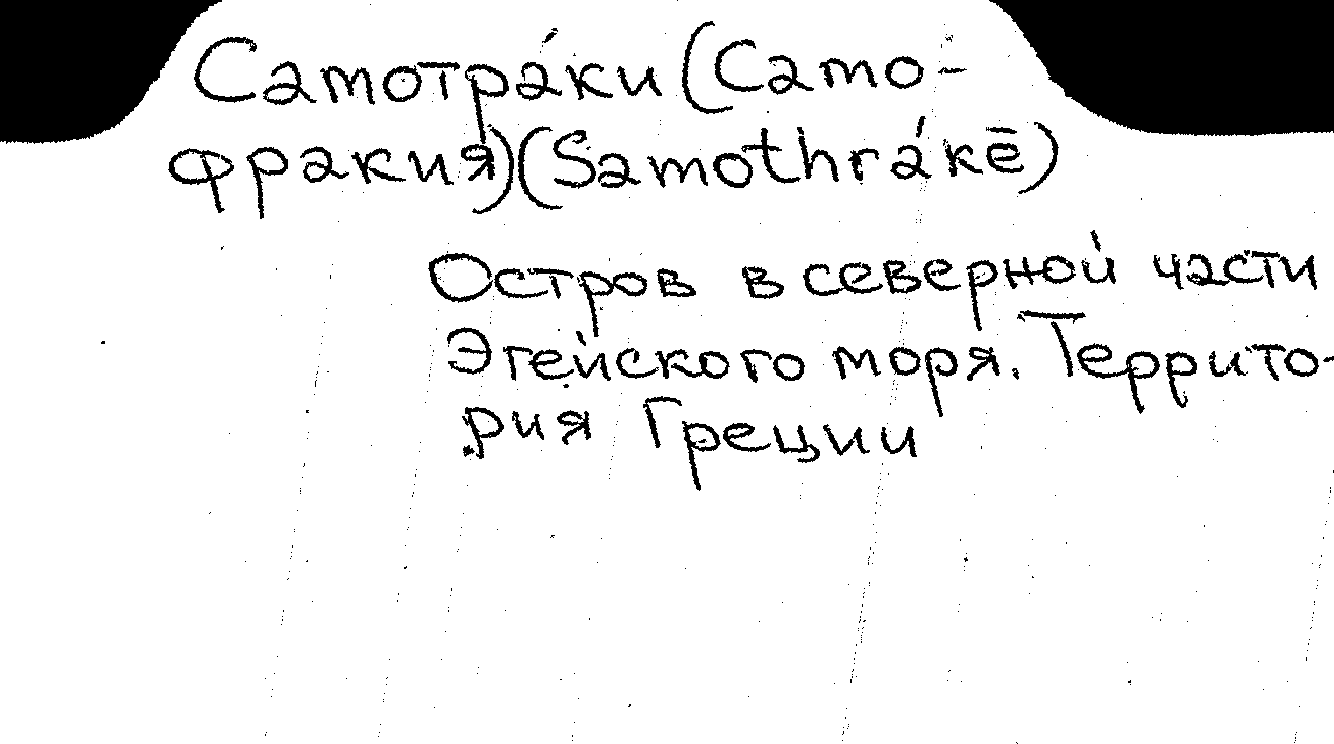 Самотра́ки (Само-
фракия) (Samothrákē)
Остров в северной части
Эгейского моря. Террито-
рия Греции